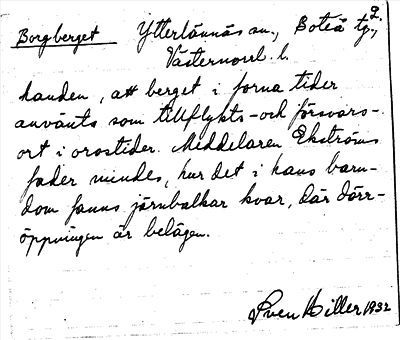 2.
Borgberget Ytterlännäs sn., Boteå tg.,
Västernorrl. l.
handen, att berget i forna tider
använts som tillflykts- och försvars-
ort i orostider. Meddelaren Ekströms
fader mindes, hur det i hans barn-
dom fanns järnbalkar kvar, där dörr-
öppningen är belägen.
Sven Hiller 1932